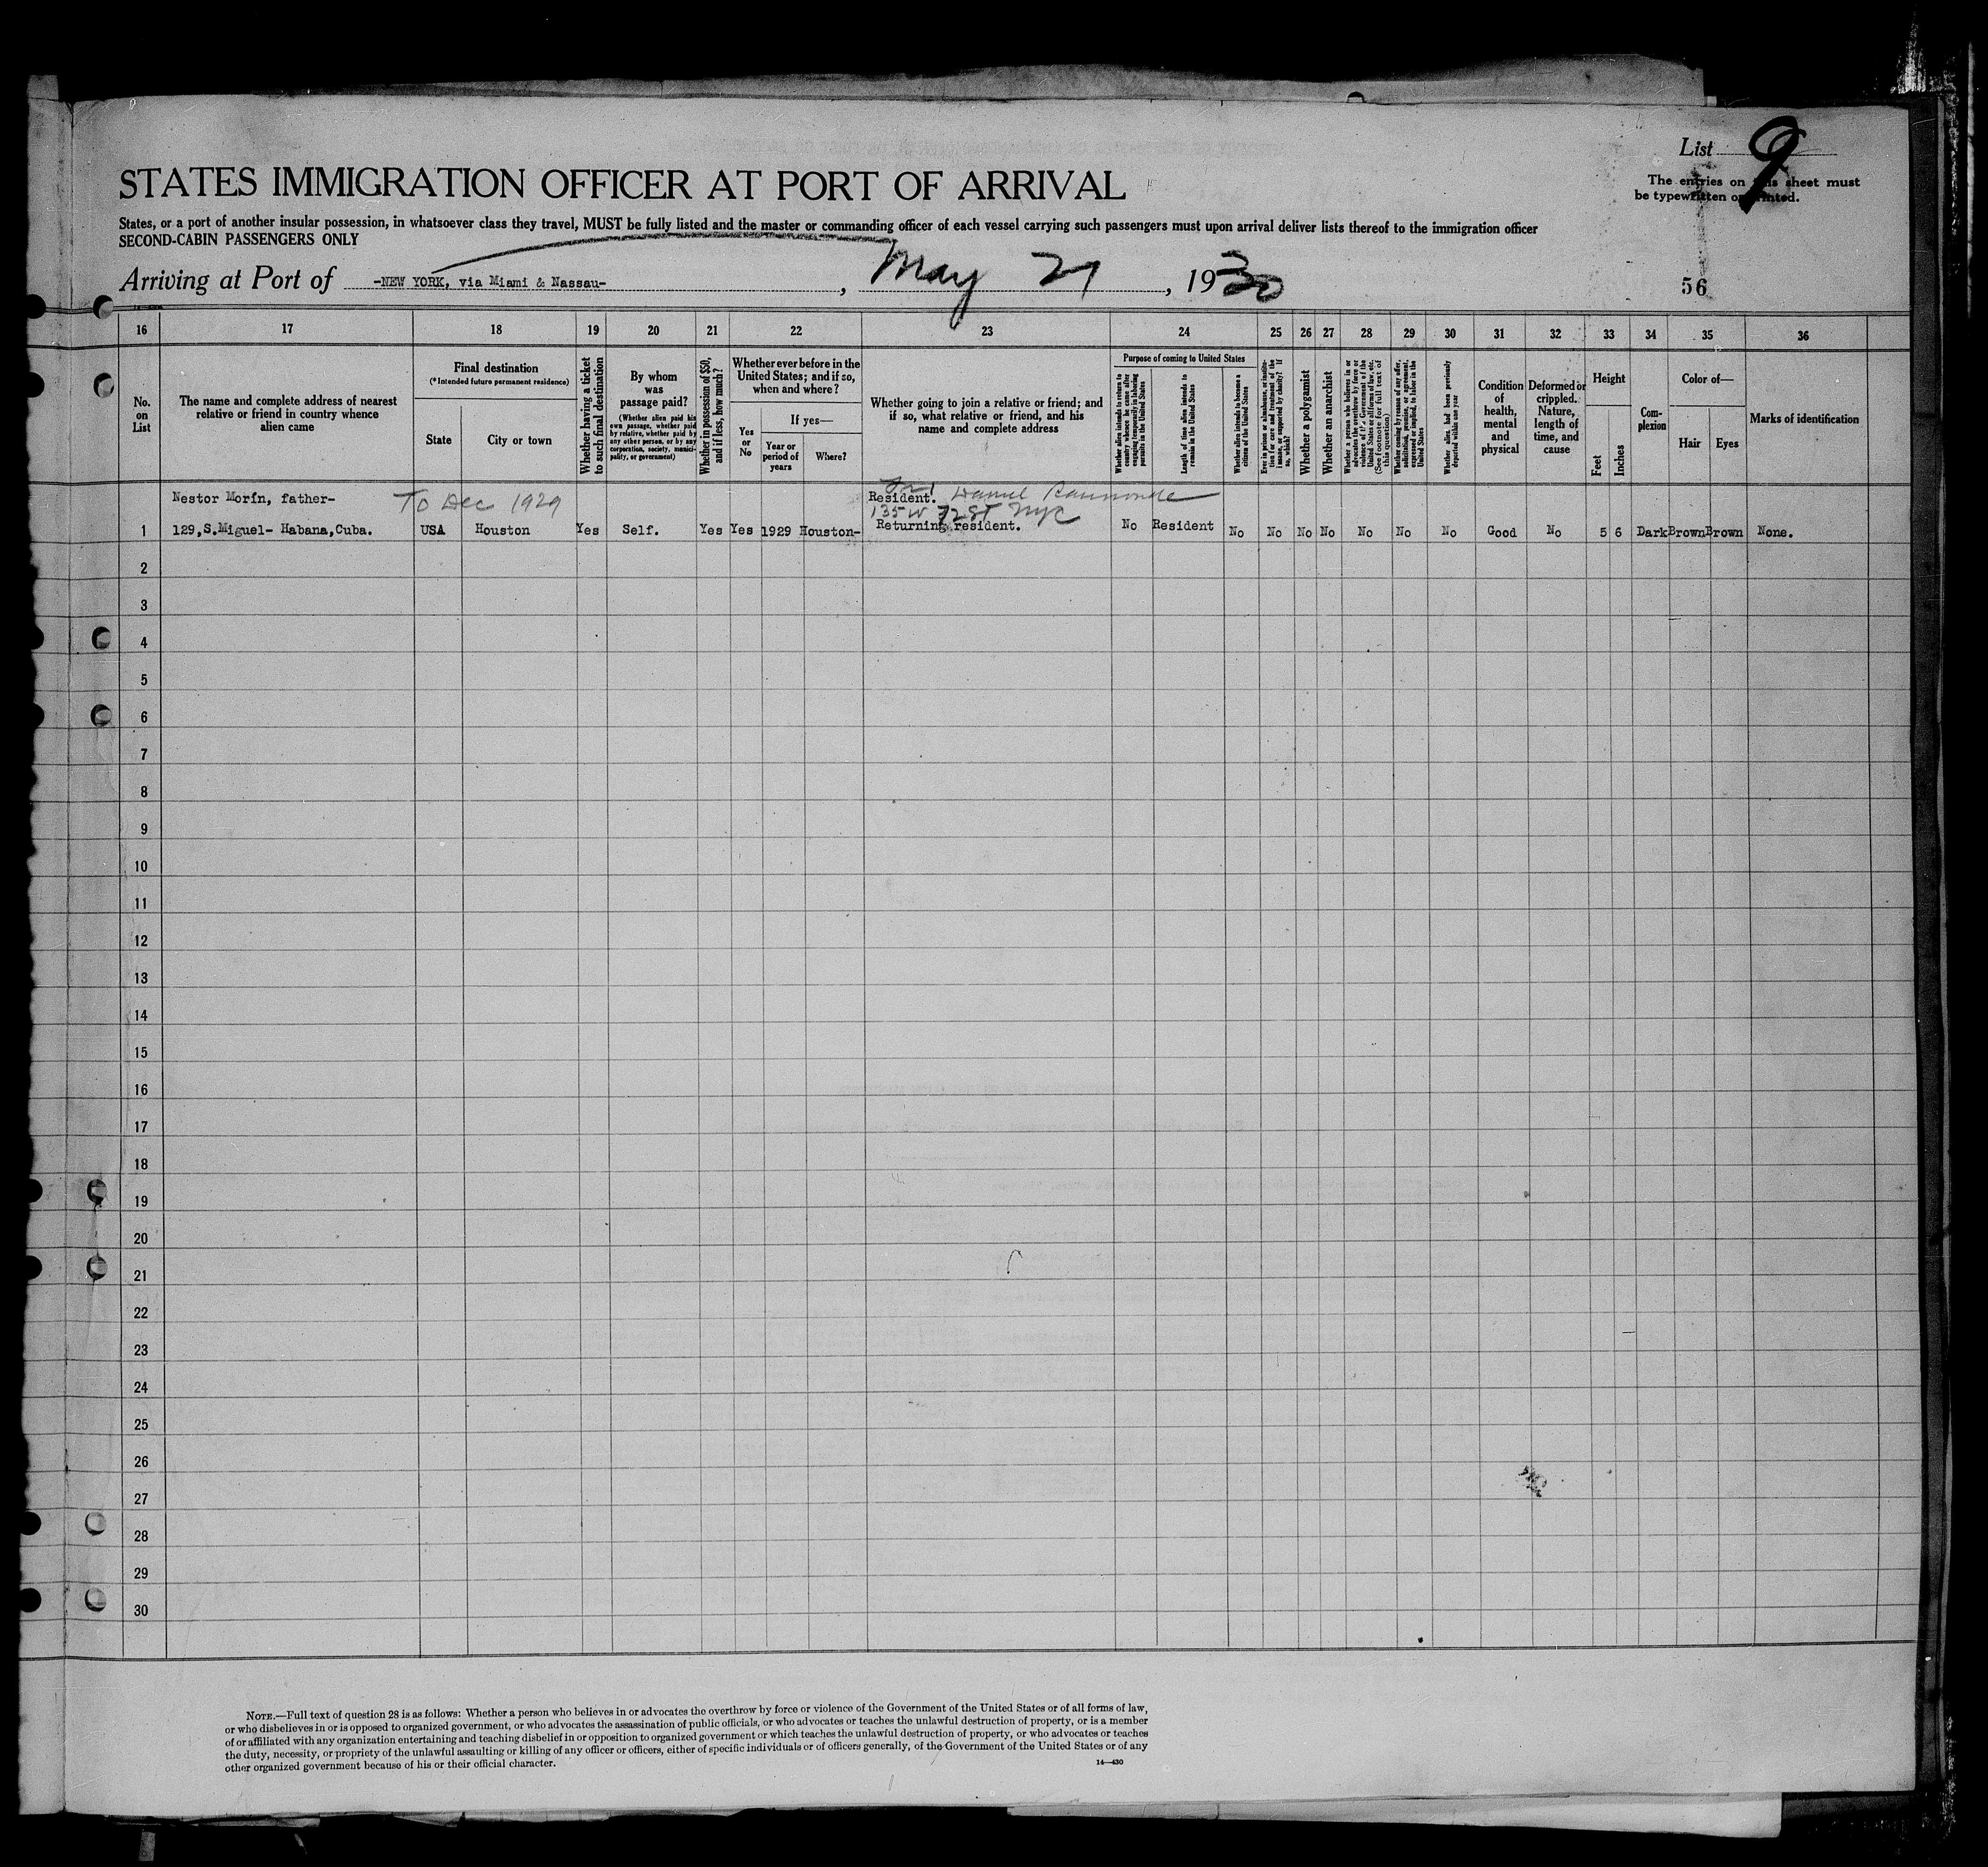 List 9
The entries on this sheet must
be typewritten or printed.
STATES IMMIGRATION OFFICER AT PORT OF ARRIVAL
States, or a port of another insular possession, in whatsoever class they travel, MUST be fully listed and the master or commanding officer of each vessel carrying such passengers must upon arrival deliver lists thereof to the immigration officer
SECOND-CABIN PASSENGERS ONLY
Arriving at Port of -NEW YORK, via Miami & Nassau- , May 21 , 1930
56
16 17 18 19 20 21 22 23 24 25 26 27 28 29 30 31 32 33 34 35 36
No.
on
List
The name and complete address of nearest
relative or friend in country whence
alien came
Final destination
(*Intended future permanent residence)
State
City or town
Whether having a ticket
to such final destination
By whom
was
passage paid?
(Whether alien paid his
own passage, whether paid
by relative, whether paid by
any other person, or by any
corporation, society, munici-
pality, or government)
Whether in possession of $50,
and if less, how much?
Whether ever before in the
United States; and if so,
when and where?
Yes
or
No
If yes—
Year or
period of
years
Where?
Whether going to join a relative or friend; and
if so, what relative or friend, and his
name and complete address
Purpose of coming to United States
Whether alien intends to return to
country whence he came after
engaging temporarily in laboring
pursuits in the United States
Length of time alien intends to
remain in the United States
Whether alien intends to become a
citizen of the United States
Ever in prison or almshouse, or institu-
tion for care and treatment of the
insane, or supported by charity? If
so, which?
Whether a polygamist
Whether an anarchist
Whether a person who believes in or
advocates the overthrow by force or
violence of the Government of the
United States or all forms of law, etc.
(See footnote for full text of
this question)
Whether coming by reason of any offer,
solicitation, promise, or agreement,
expressed or implied, to labor in the
United States
Whether alien had been previously
deported within one year
Condition
of
health,
mental
and
physical
Deformed or
crippled.
Nature,
length of
time, and
cause
Height
Feet
Inches
Com-
plexion
Color of—
Hair
Eyes
Marks of identification
Nestor Morín, father-
To Dec 1929
Resident. Daniel
135 W 72 St NYC
1 129,S.Miguel- Habana,Cuba. USA Houston Yes Self. Yes Yes 1929 Houston- Returning resident. No Resident No No No No No No No Good No 5 6 Dark Brown Brown None.
2
3
4
5
6
7
8
9
10
11
12
13
14
15
16
17
18
19
20
21
22
23
24
25
26
27
28
29
30
NOTE.—Full text of question 28 is as follows: Whether a person who believes in or advocates the overthrow by force or violence of the Government of the United States or of all forms of law,
or who disbelieves in or is opposed to organized government, or who advocates the assassination of public officials, or who advocates or teaches the unlawful destruction of property, or is a member
of or affiliated with any organization entertaining and teaching disbelief in or opposition to organized government or which teaches the unlawful destruction of property, or who advocates or teaches
the duty, necessity, or propriety of the unlawful assaulting or killing of any officer or officers, either of specific individuals or of officers generally, of the Government of the United States or of any
other organized government because of his or their official character.
14—430